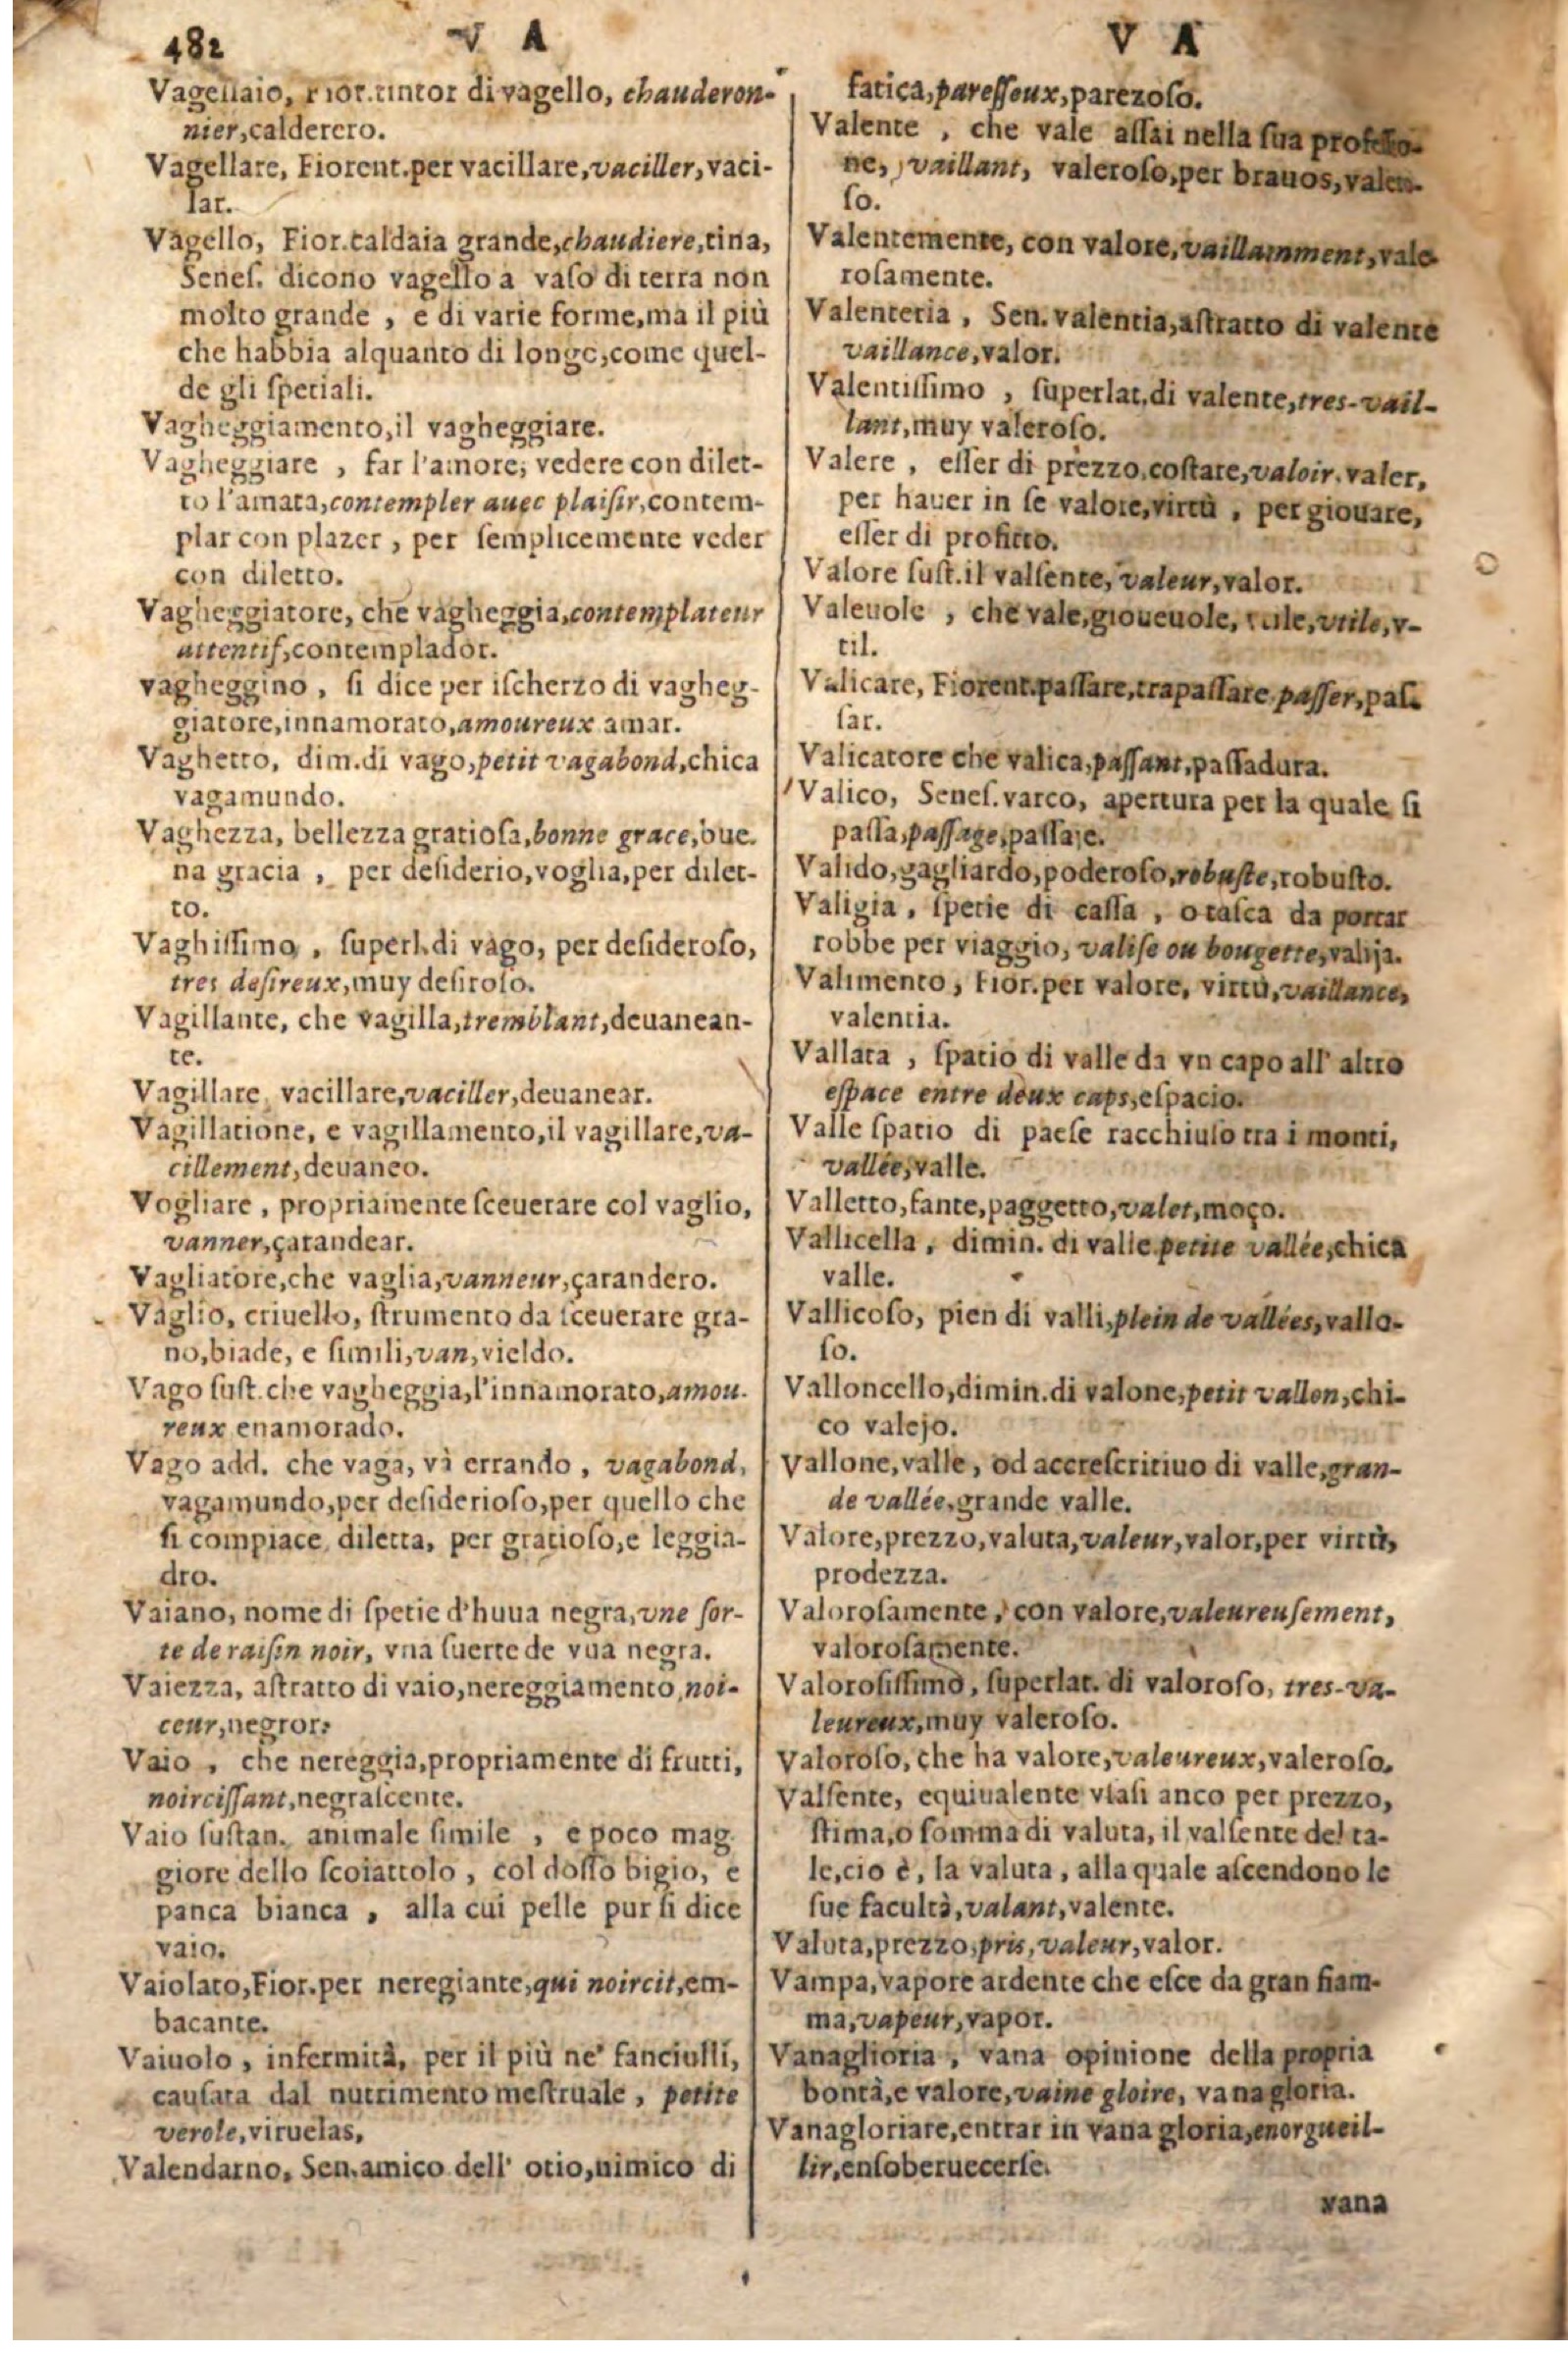 482 V A
V A
Vagellaio, Fior.tintor di vagello, chauderon-
nier,calderero.
Vagellare, Fiorent.per vacillare,vaciller,vaci-
lar.
Vagello, Fior.caldaia grande,chaudiere,tina,
Seneſ. dicono vagello a vaſo di terra non
molto grande , e di varie forme,ma il più
che habbia alquanto di longo,come quel-
de gli ſpetiali.
Vagheggiamento,il vagheggiare.
Vagheggiare , far l'amore; vedere con dilet-
to l'amata,contempler auec plaiſir,contem-
plar con plazer , per ſemplicemente veder
con diletto.
Vagheggiatore, che vagheggia,contemplateur
attentif,contemplador.
vagheggino , ſi dice per iſcherzo di vagheg-
giatore,innamorato,amoureux amar.
Vaghetto, dim.di vago,petit vagabond,chica
vagamundo.
Vaghezza, bellezza gratioſa,bonne grace,bue.
na gracia , per deſiderio,voglia,per dilet-
to.
Vaghiſſimo , ſuperl.di vago, per deſideroſo,
tres deſireux,muy deſiroſo.
Vagillante, che vagilla,tremblant,deuanean-
te.
Vagillare, vacillare,vaciller,deuanear.
Vagillatione, e vagillamento,il vagillare,va-
cillement,deuaneo.
Vogliare , propriamente ſceuerare col vaglio,
vanner,çarandear.
Vagliatore,che vaglia,vanneur,çarandero.
Vaglio, criuello, ſtrumento da ſceuerare gra-
no,biade, e ſimili,van,vieldo.
Vago ſuſt.che vagheggia,l'innamorato,amou.
reux enamorado.
Vago add. che vaga, và errando , vagabond,
vagamundo,per deſiderioſo,per quello che
ſi compiace, diletta, per gratioſo,e leggia-
dro.
Vaiano, nome di ſpetie d'huua negra,vne ſor-
te de raiſin noir, vna ſuerte de vua negra.
Vaiezza, aſtratto di vaio,nereggiamento,noi-
ceur,negror.
Vaio , che nereggia,propriamente di frutti,
noirciſſant,negraſcente.
Vaio ſuſtan. animale ſimile , e poco mag
giore dello ſcoiattolo , col doſſo bigio, e
panca bianca , alla cui pelle pur ſi dice
vaio.
Vaiolato,Fior.per neregiante,qui noircit,em-
bacante.
Vaiuolo , infermità, per il più ne' fanciulli,
cauſata dal nutrimento meſtruale , petite
verole,viruelas,
Valendarno, Sen.amico dell' otio,nimico di
fatica,pareſſeux,parezoſo.
Valente , che vale aſſai nella ſua profeſſio-
ne, vaillant, valeroſo,per brauos,valen-
ſo.
Valentemente, con valore,vaillamment,vale-
roſamente.
Valenteria , Sen.valentia,aſtratto di valente
vaillance,valor.
Valentiſſimo , ſuperlat.di valente,tres-vail-
lant,muy valeroſo.
Valere , eſſer di prezzo,coſtare,valoir.valer,
per hauer in ſe valore,virtù , per giouare,
eſſer di profitto.
Valore ſuſt.il valſente, valeur,valor.
Valeuole , che vale,gioueuole, vtile,vtile,v-
til.
Valicare, Fiorent.paſſare,trapaſſare.paſſer,paſ-
ſar.
Valicatore che valica,paſſant,paſſadura.
Valico, Seneſ.varco, apertura per la quale ſi
paſſa,paſſage,paſſaje.
Valido,gagliardo,poderoſo,robuſte,robuſto.
Valigia , ſpetie di caſſa , o taſca da portar
robbe per viaggio, valiſe ou bougette,valija.
Valimento , Fior.per valore, virtù,vaillance,
valentia.
Vallata , ſpatio di valle da vn capo all' altro
eſpace entre deux caps,eſpacio.
Valle ſpatio di paeſe racchiuſo tra i monti,
vallée,valle.
Valletto,fante,paggetto,valet,moço.
Vallicella , dimin. di valle.petite vallée,chica
valle.
Vallicoſo, pien di valli,plein de vallées,vallo-
ſo.
Valloncello,dimin.di valone,petit vallon,chi-
co valejo.
Vallone,valle , od accreſcritiuo di valle,gran-
de vallée,grande valle.
Valore,prezzo,valuta,valeur,valor,per virtù,
prodezza.
Valoroſamente , con valore,valeureuſement,
valoroſamente.
Valoroſiſſimo , ſuperlat. di valoroſo, tres-va-
leureux,muy valeroſo.
Valoroſo, che ha valore,valeureux,valeroſo.
Valſente, equiualente vſaſi anco per prezzo,
ſtima,o ſomma di valuta, il valſente del ta-
le,cio è, la valuta , alla quale aſcendono le
ſue facultà,valant,valente.
Valuta,prezzo,pris,valeur,valor.
Vampa,vapore ardente che eſce da gran fiam-
ma,vapeur,vapor.
Vanaglioria , vana opinione della propria
bontà,e valore,vaine gloire, vana gloria.
Vanagloriare,entrar in vana gloria,enorgueil-
lir,enſoberuecerſe.
vana